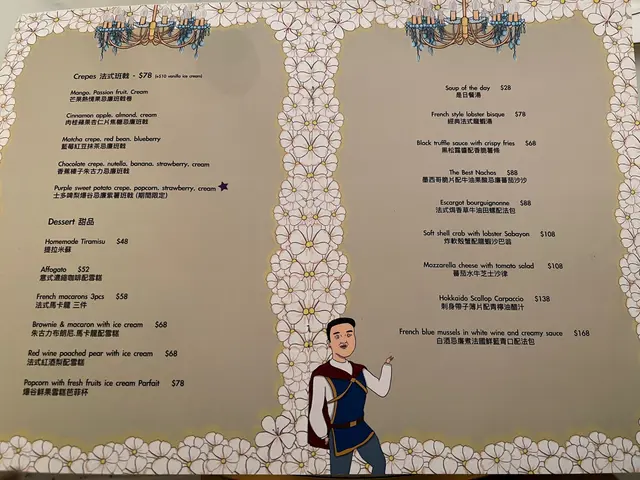 Crepes 法式班戟 - $78 (+$10 vanilla ice cream)
Mango, Passion fruit, Cream
芒果熱情果忌廉班戟卷
Cinnamon apple, almond, cream
肉桂蘋果杏仁片焦糖忌廉班戟
Matcha crepe, red bean, blueberry
藍莓紅豆抹茶忌廉班戟
Chocolate crepe, nutella, banana, strawberry, cream
香蕉榛子朱古力忌廉班戟
Purple sweet potato crepe, popcorn, strawberry, cream
士多啤梨爆谷忌廉紫薯班戟 (期間限定)
Dessert 甜品
Homemade Tiramisu $48
提拉米蘇
Affogato $52
意式濃縮咖啡配雪糕
French macarons 3pcs $58
法式馬卡龍 三件
Brownie & macaron with ice cream $68
朱古力布朗尼.馬卡龍配雪糕
Red wine poached pear with ice cream $68
法式紅酒梨配雪糕
Popcorn with fresh fruits ice cream Parfait $78
爆谷鮮果雪糕芭菲杯
Soup of the day $28
是日餐湯
French style lobster bisque $78
經典法式龍蝦湯
Black truffle sauce with crispy fries $68
黑松露醬配香脆薯條
The Best Nachos $88
墨西哥脆片配牛油果酸忌廉蕃茄沙沙
Escargot bourguignonne $88
法式焗香草牛油田螺配法包
Soft shell crab with lobster Sabayon $108
炸軟殼蟹配龍蝦沙巴翁
Mozzarella cheese with tomato salad $108
蕃茄水牛芝士沙律
Hokkaido Scallop Carpaccio $138
刺身帶子薄片配青檸油醋汁
French blue mussels in white wine and creamy sauce $168
白酒忌廉煮法國鮮藍青口配法包